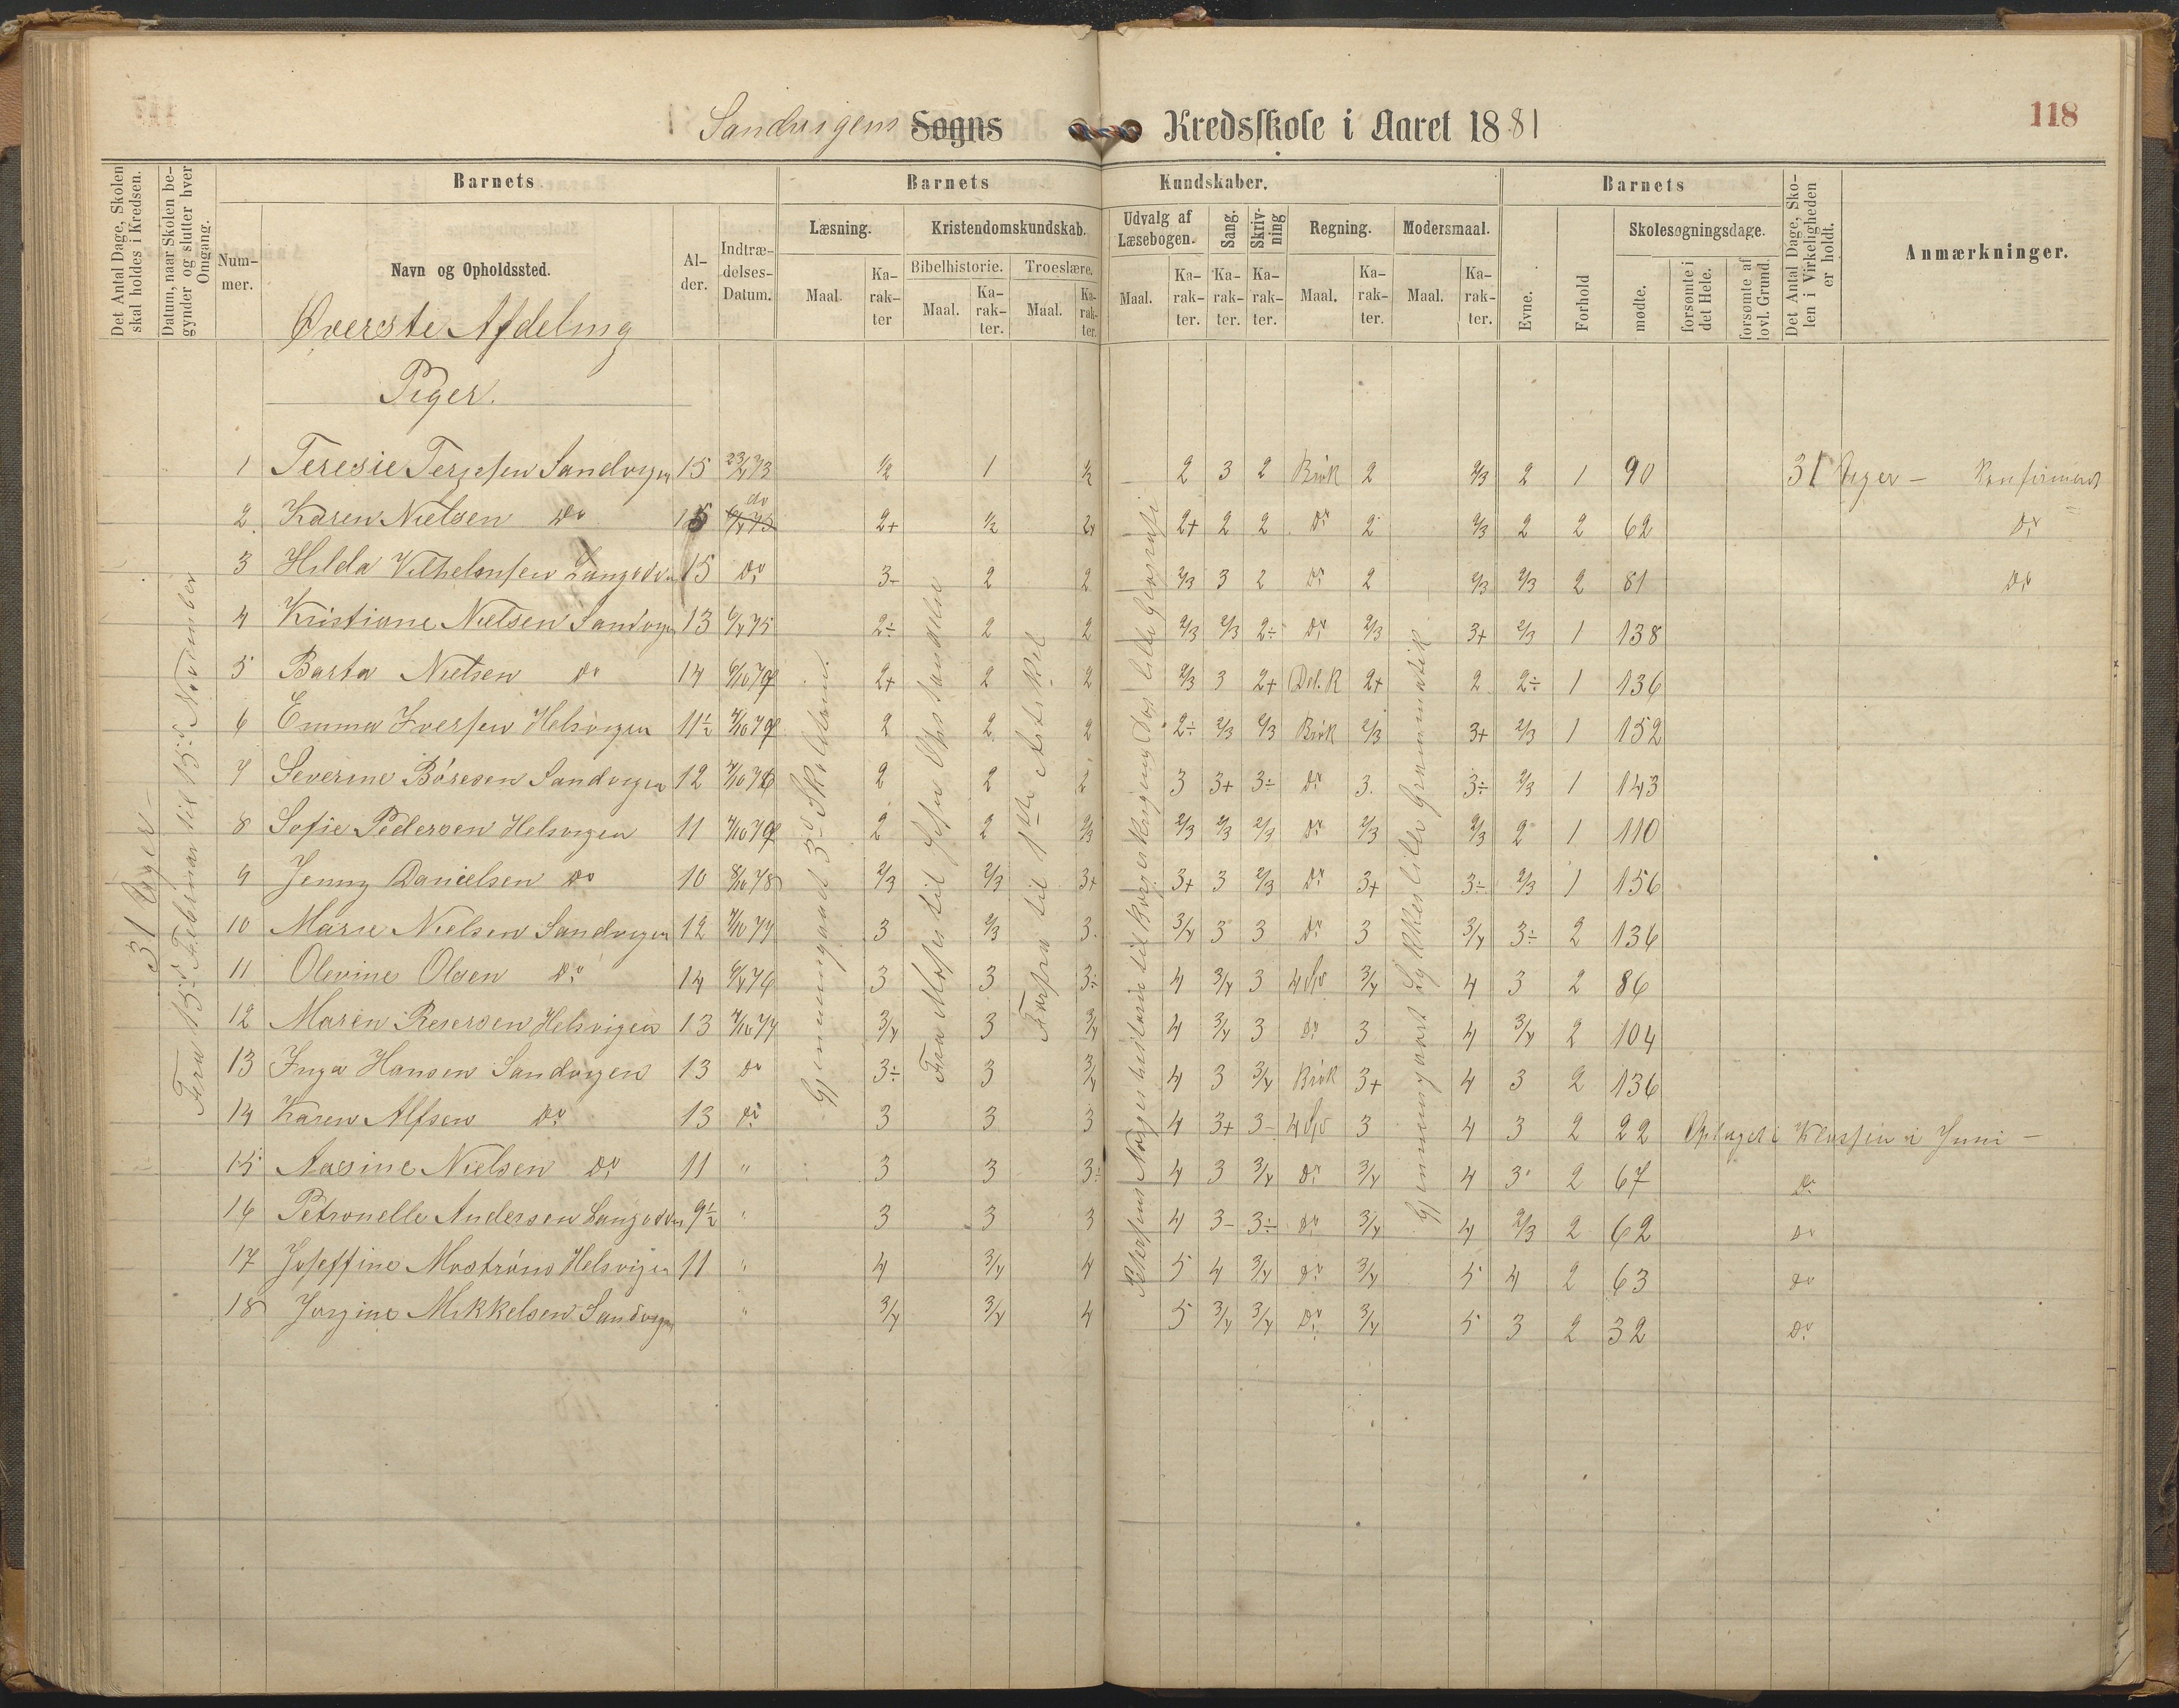 118
Sandvigens Sogns Kredsskole i Aaret 1881
Det Antal Dage, Skolen skal holdes i Kredsen.
Datum, naar Skolen begynder og slutter hver Omgang.
Barnets
Barnets Kundskaber.
Barnets
Det Antal Dage, Skolen i Virkeligheden er holdt.
Anmærkninger.
Nummer.
Navn og Opholdssted.
Alder.
Indtrædelses-Datum.
Læsning.
Kristendomskundskab.
Udvalg af Læsebogen.
Sang.
Skrivning
Regning.
Modersmaal.
Evne.
Forhold
Skolesøgningsdage.
Bibelhistorie.
Troeslære.
Maal.
Karakter
Maal.
Karakter.
Maal.
Karakter.
Maal.
Karakter.
Karakter.
Karakter.
Maal.
Karakter.
Maal.
Karakter.
mødte.
forsømte i det Hele.
forsømte af lovl. Grund.
Øverste Afdeling
Piger.
31 Uger
Fra 15d Februar til 15d November
Gjennemgaaet 3d Skoletrin.
Fra Moses til Jesu Opstandelse
Forfra til 1ste Artikel
Gjennemgaaet Lykkes lille Grammatik
1 Teresie Terjesen Sandvigen 15 23/4 73 1/2 1 1/2 2 3 2 Brøk 2 2/3 2 1 90 31 Uger – Konfirmert
2 Karen Nielsen Do 15 do 2+ 1/2 2+ 2+ 2 2 Do 2 2/3 2 2 62 Do
3 Hilda Vilhelmsen 15 Do 3- 2 2 2/3 3 2 Do 2 2/3 2/3 2 81 Do
4 Kristiane Nielsen Sandvigen 13 6/4 75 2÷ 2 2 2/3 2/3 2÷ Do 2/3 3+ 2/3 1 138
5 Barta Nielsen Do 14 2+ 2 2 2/3 3 2+ Del.R 2+ 2 2÷ 1 136
6 Emma Iversen Helsvigen 11½ 2 2 2 2÷ 2/3 2/3 Brøk 2/3 3+ 2/3 1 152
7 Severine Børesen Sandvigen 12 2 2 2 3 3+ 3÷ Do 3 3÷ 2/3 1 143
8 Sofie Pedersen Helsvigen 11 2 2 2/3 2/3 2/3 2/3 Do 2/3 2/3 2 1 110
9 Jenny Danielsen Do 10 8/10 78 2/3 2/3 3+ 3+ 3 2/3 Do 3+ 3÷ 2/3 1 156
10 Marie Nielsen Sandvigen 12 7/10 77 3 2/3 3 3/4 3 3 Do 3 3/4 3÷ 2 136
11 Olevine Olsen Do 14 6/4 76 3 3 3÷ 4 3/4 3 4 Sp 3/4 4 3 2 86
12 Maren Reiersen Helsvigen 13 7/10 77 3/4 3 3/4 4 3/4 3 Do 3 4 3/4 2 104
13 Inga Hansen Sandvigen 13 Do 3÷ 3 3/4 4 3 3/4 Brøk 3+ 4 3 2 136
14 Karen Alfsen Do 13 Do 3 3 3 4 3+ 3- 4 Sp 3 4 3 2 22 Optaget i Klassen i Juni –
15 Aasine Nielsen Do 11 " 3 3 3÷ 4 3 3/4 Do 3/4 4 3 2 67 Do
16 Petronelle Andersen 9½ " 3 3 3 4 3- 3÷ Do 3/4 4 2/3 2 62 Do
17 Joseffine Mostrøm Helsvigen 11 " 4 3/4 4 5 4 3/4 Do 3/4 5 4 2 63 Do
18 Jorgine Mikkelsen Sandvigen " 3/4 3/4 4 5 3/4 3/4 Do 3/4 5 3 2 32 Do